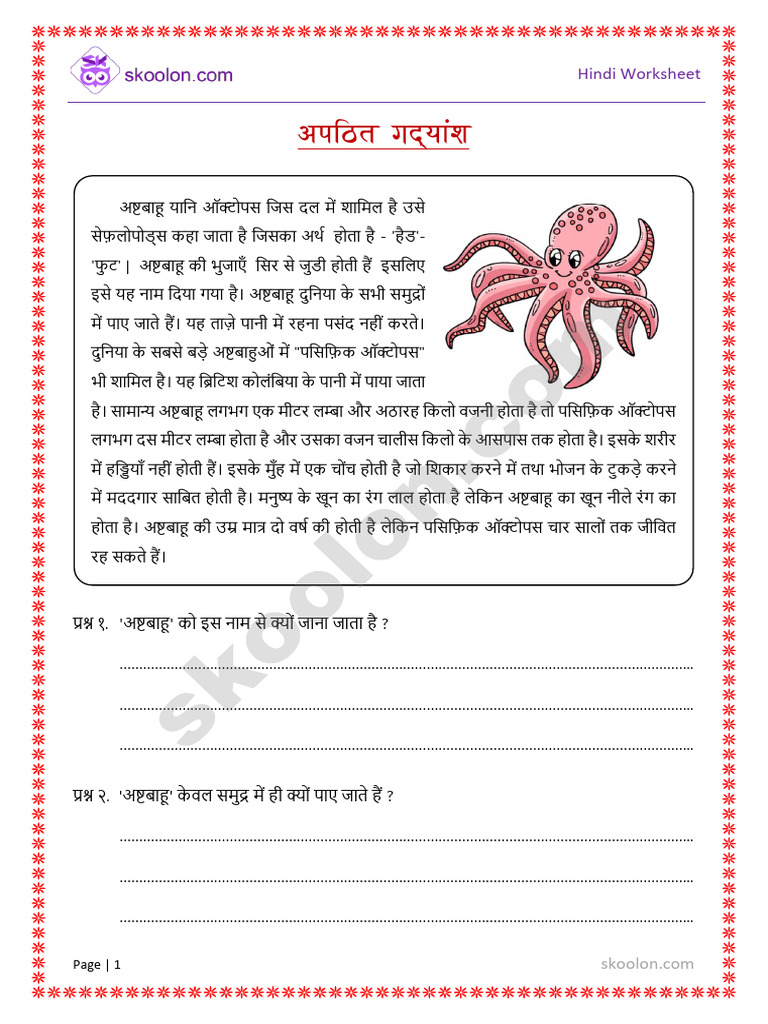 skoolon.com
Hindi Worksheet
अपठित गद्यांश
अष्टबाहू यानि ऑक्टोपस जिस दल में शामिल है उसे
सेफ़लोपोड्स कहा जाता है जिसका अर्थ होता है - 'हैड'-
'फुट'| अष्टबाहू की भुजाएँ सिर से जुडी होती हैं इसलिए
इसे यह नाम दिया गया है। अष्टबाहू दुनिया के सभी समुद्रों
में पाए जाते हैं। यह ताज़े पानी में रहना पसंद नहीं करते।
दुनिया के सबसे बड़े अष्टबाहुओं में "पसिफ़िक ऑक्टोपस"
भी शामिल है। यह ब्रिटिश कोलंबिया के पानी में पाया जाता
है। सामान्य अष्टबाहू लगभग एक मीटर लम्बा और अठारह किलो वजनी होता है तो पसिफ़िक ऑक्टोपस
लगभग दस मीटर लम्बा होता है और उसका वजन चालीस किलो के आसपास तक होता है। इसके शरीर
में हड्डियाँ नहीं होती हैं। इसके मुँह में एक चोंच होती है जो शिकार करने में तथा भोजन के टुकड़े करने
में मददगार साबित होती है। मनुष्य के खून का रंग लाल होता है लेकिन अष्टबाहू का खून नीले रंग का
होता है। अष्टबाहू की उम्र मात्र दो वर्ष की होती है लेकिन पसिफ़िक ऑक्टोपस चार सालों तक जीवित
रह सकते हैं।
प्रश्न १. 'अष्टबाहू' को इस नाम से क्यों जाना जाता है ?
प्रश्न २. 'अष्टबाहू' केवल समुद्र में ही क्यों पाए जाते हैं ?
skoolon.com
Page | 1
skoolon.com